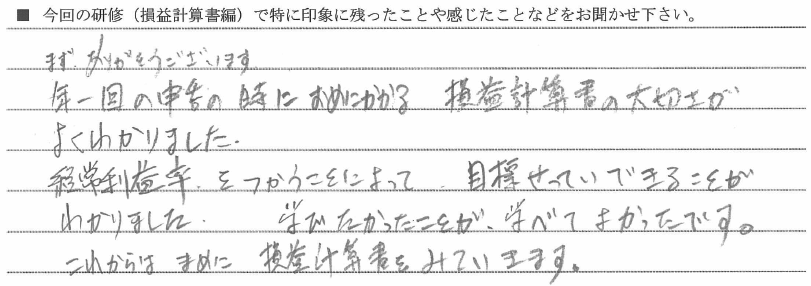 ■ 今回の研修（損益計算書編）で特に印象に残ったことや感じたことなどをお聞かせ下さい。
まず、ありがとうございます
年一回の申告の時におめにかかる 損益計算書の大切さが
よくわかりました.
経常利益率.をつかうことによって. 目標せっていできることが
わかりました. 学びたかったことが、学べてよかったです。
これからは まめに 損益計算書をみていきます。